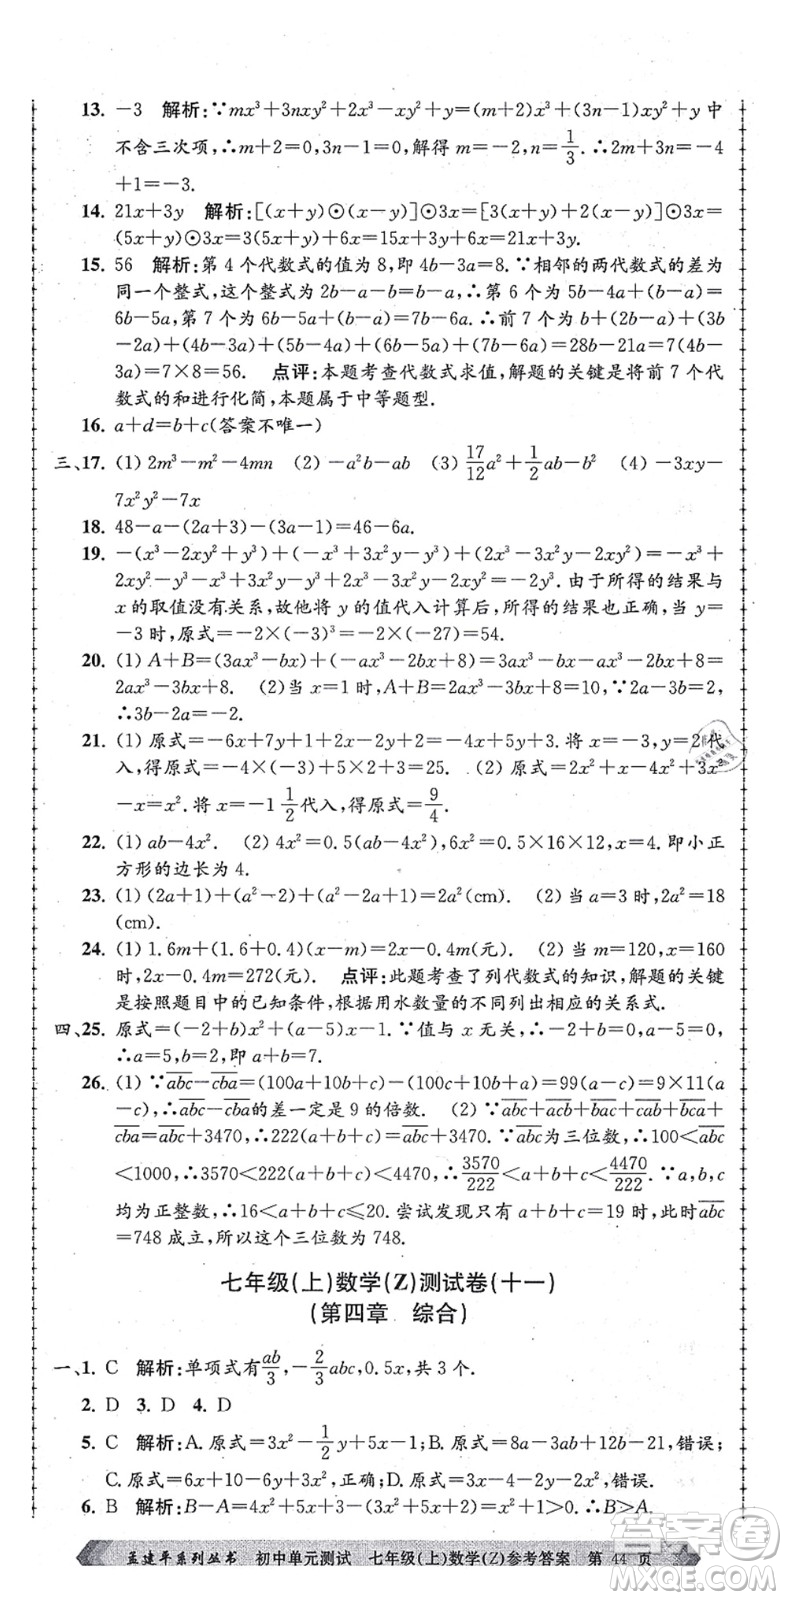 13. －3　解析:∵mx³＋3nxy²＋2x³－xy²＋y＝(m＋2)x³＋(3n－1)xy²＋y 中
不含三次项,∴m＋2＝0,3n－1＝0,解得 m＝－2,n＝1/3.∴2m＋3n＝－4
＋1＝－3.
14. 21x＋3y　解析:[(x＋y)⊙(x－y)]⊙3x＝[3(x＋y)＋2(x－y)]⊙3x＝
(5x＋y)⊙3x＝3(5x＋y)＋6x＝15x＋3y＋6x＝21x＋3y.
15. 56　解析:第 4 个代数式的值为 8,即 4b－3a＝8.∵相邻的两代数式的差为
同一个整式,这个整式为 2b－a－b＝b－a,∴第 6 个为 5b－4a＋(b－a)＝
6b－5a,第 7 个为 6b－5a＋(b－a)＝7b－6a.∴前 7 个为 b＋(2b－a)＋(3b
－2a)＋(4b－3a)＋(5b－4a)＋(6b－5a)＋(7b－6a)＝28b－21a＝7(4b－
3a)＝7×8＝56.　点评:本题考查代数式求值,解题的关键是将前 7 个代
数式的和进行化简,本题属于中等题型.
16. a＋d＝b＋c(答案不唯一)
三、17. (1) 2m³－m²－4mn　(2) －a²b－ab　(3) 17/12a²＋1/2ab－b²　(4) －3xy－
7x²y²－7x
18. 48－a－(2a＋3)－(3a－1)＝46－6a.
19. －(x³－2xy²＋y³)＋(－x³＋3x²y－y³)＋(2x³－3x²y－2xy²)＝－x³＋
2xy²－y³－x³＋3x²y－y³＋2x³－3x²y－2xy²＝－2y³.由于所得的结果与
x 的取值没有关系,故他将 y 的值代入计算后,所得的结果也正确,当 y＝
－3 时,原式＝－2×(－3)³＝－2×(－27)＝54.
20. (1) A＋B＝(3ax³－bx)＋(－ax³－2bx＋8)＝3ax³－bx－ax³－2bx＋8＝
2ax³－3bx＋8.　(2)当 x＝1 时,A＋B＝2a－3b＋8＝10,∵2a－3b＝2,
∴3b－2a＝－2.
21. (1) 原式＝－6x＋7y－12x＋10x－5y＋3＝－8x＋2y＋3.将 x＝－3,y＝2代
入,得原式＝24－3＋2×2＋3＝25.　(2) 原式＝2x²－4x＋4－4＋3x－x²
－x＝x².将 x＝－1 1/2代入,得原式＝9/4.
22. (1) ab－4x².　(2) 4x²＝0.5(ab－4x²),6x²＝0.5×16×12,x＝4.即小正
方形的边长为 4.
23. (1) (2a＋1)＋(a²－2)＋(a²－2a＋1)＝2a²(cm).　(2) 当 a＝3 时,2a²＝18
(cm).
24. (1) 1.6m＋(1.6＋0.4)(m－x)＝2m－0.4x(元).　(2) 当 m＝120,x＝160
时,2m－0.4m＝272(元).　点评:此题考查了列代数式的知识,解题的关键
是按照题目中的已知条件,根据用水数量的不同列出相应的关系式.
四、25. 原式＝(－2＋b)x²＋(a－5)x－1.∵值与 x 无关,∴－2＋b＝0,a－5＝0,
∴a＝5,b＝2,即 a＋b＝7.
26. (1) ∵abc－cba＝(100a＋10b＋c)－(100c＋10b＋a)＝99(a－c)＝9×11(a
－c),∴abc－cba的差一定是 9 的倍数.　(2) ∵abc＋acb＋bac＋cab＋bca＋
cba＝abc＋3470,∴222(a＋b＋c)＝abc＋3470,∵abc为三位数,∴100＜abc
＜1000,∴3570＜222(a＋b＋c)＜4470,∴3570/222＜a＋b＋c＜4470/222.∵a,b,c
均为正整数,∴16＜a＋b＋c≤20.尝试发现只有 a＋b＋c＝19 时,此时abc
＝748 成立,所以这个三位数为 748.
七年级(上)数学(Z)测试卷(十一)
(第四章　综合)
一、1. C　解析:单项式有ab/3,－2/3abc,0.5x,共 3 个.
2. D　3. D　4. D
5. C　解析:A.原式＝3x²－1/2y＋5x－1;B.原式＝8a－3ab－12b－21,错误;
C.原式＝6x－10y－2x＋2y＝4x－8y;D.原式＝2x－3y－2x²－2y²,错误.
6. B　解析:B－A＝4x²＋5x＋5－3x²－5x－2＝x²＋3＞0.∴B＞A.
孟建平系列丛书　初中单元测试　七年级(上)数学(Z)参考答案　第 44 页